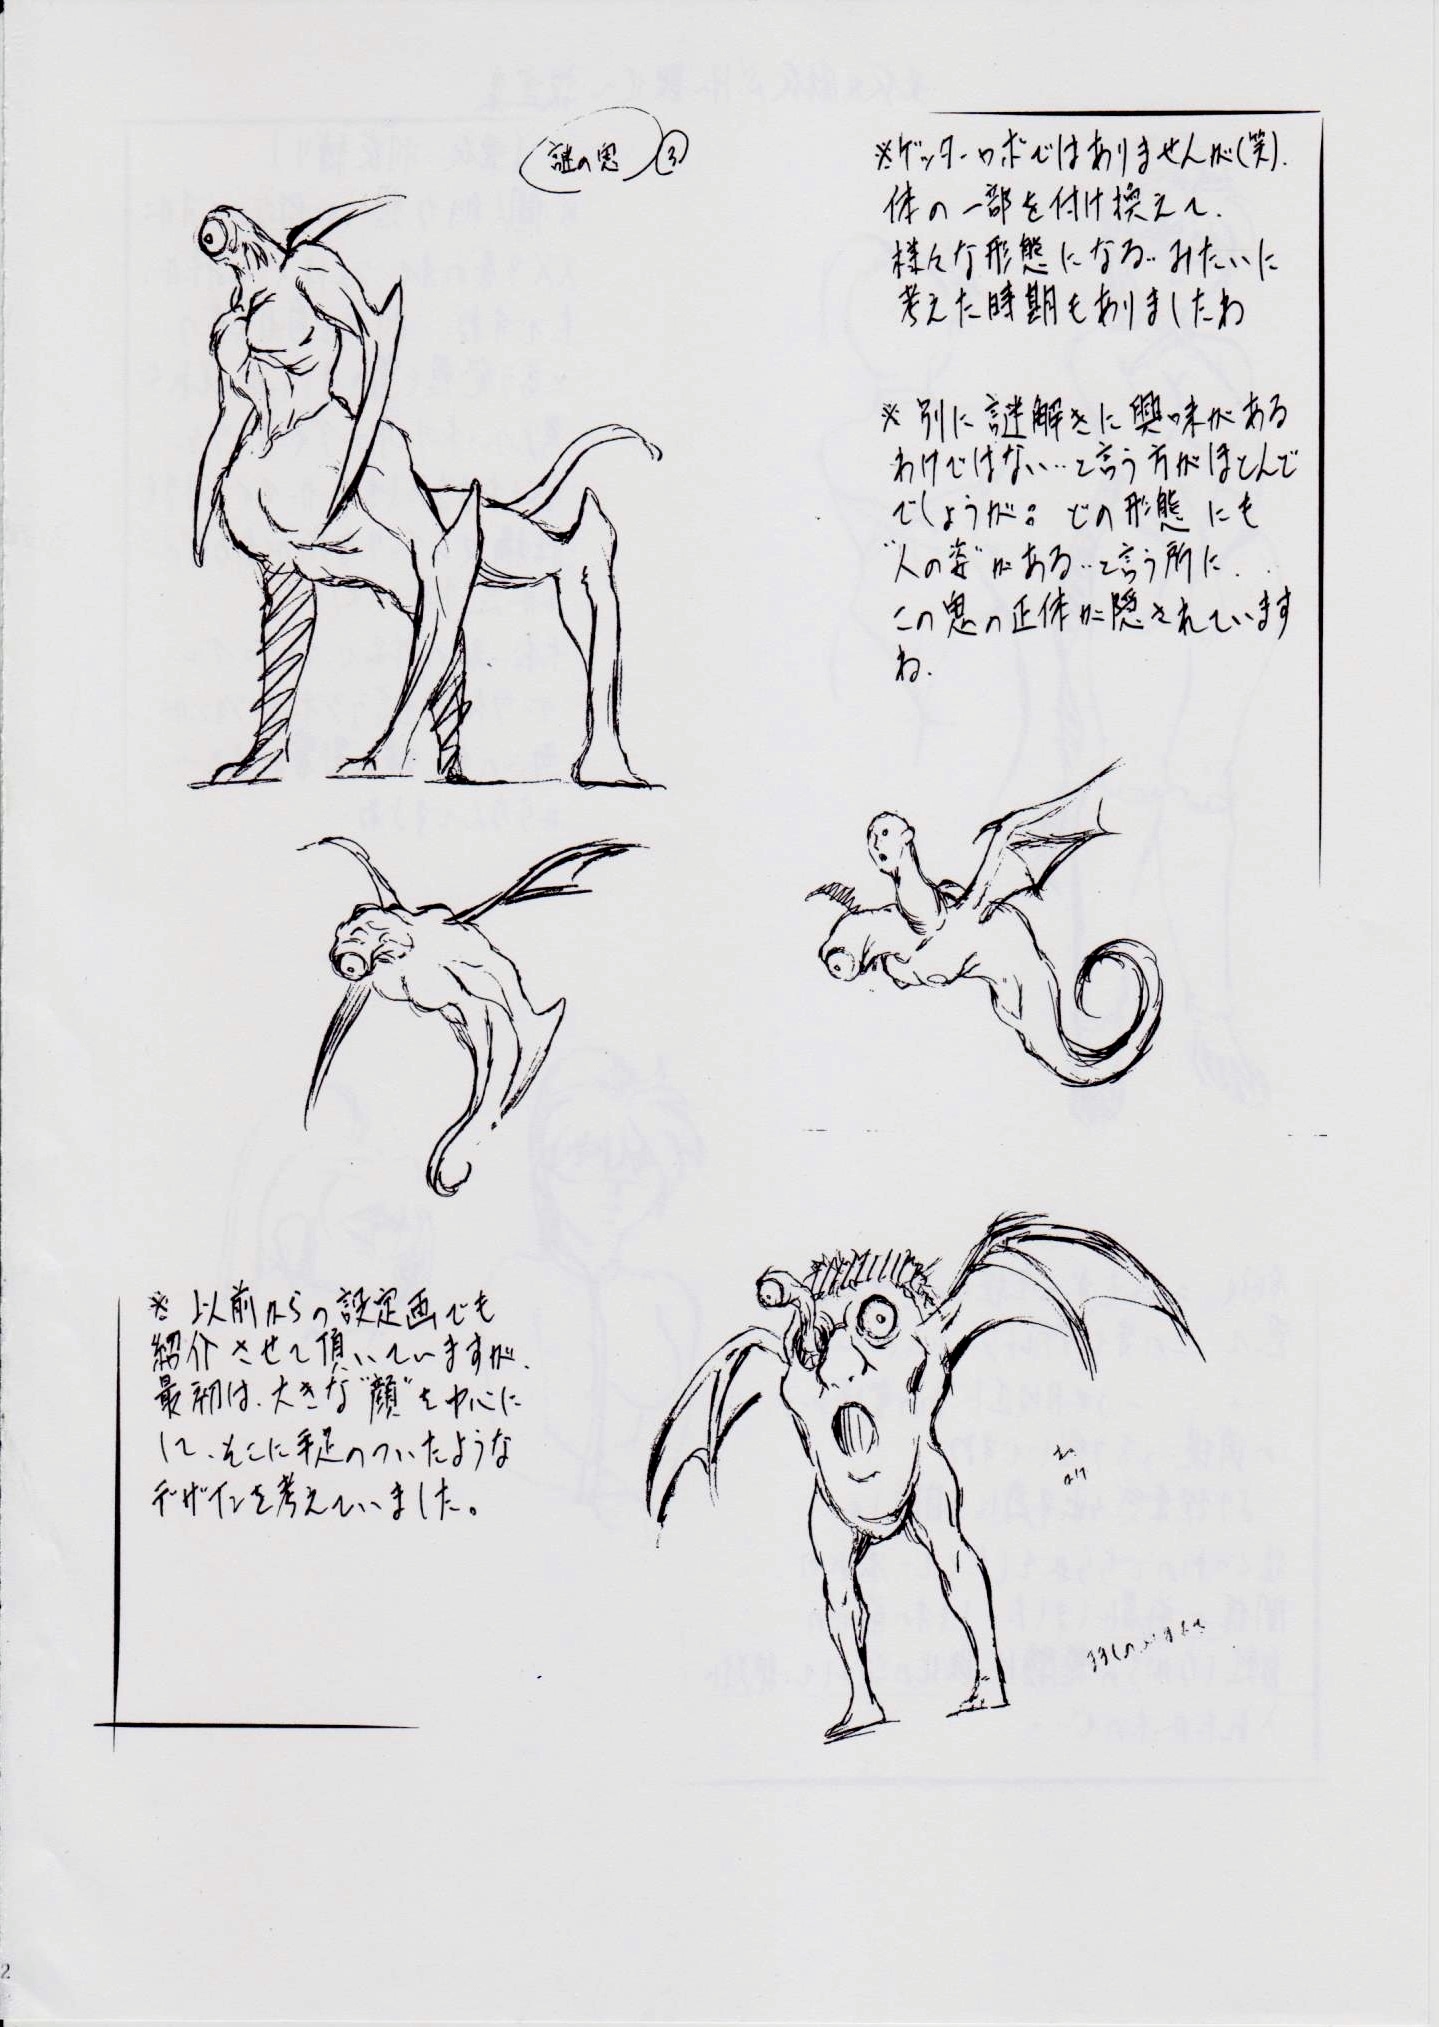 謎の鬼 ③
※ゲッターロボではありませんが(笑).
体の一部を付け換えて、
様々な形態になる‥みたいに
考えた時期もありましたね
※別に謎解きに興味がある
わけではない‥と言う方がほとんどで
でしょうが。どの形態にも
"人の姿"がある‥と言う所に‥
この鬼の正体が隠されています
ね.
※以前からの設定画でも
紹介させて頂いていますが、
最初は、大きな"顔"を中心に
して、そこに手足のついたような
デザインを考えていました。
2